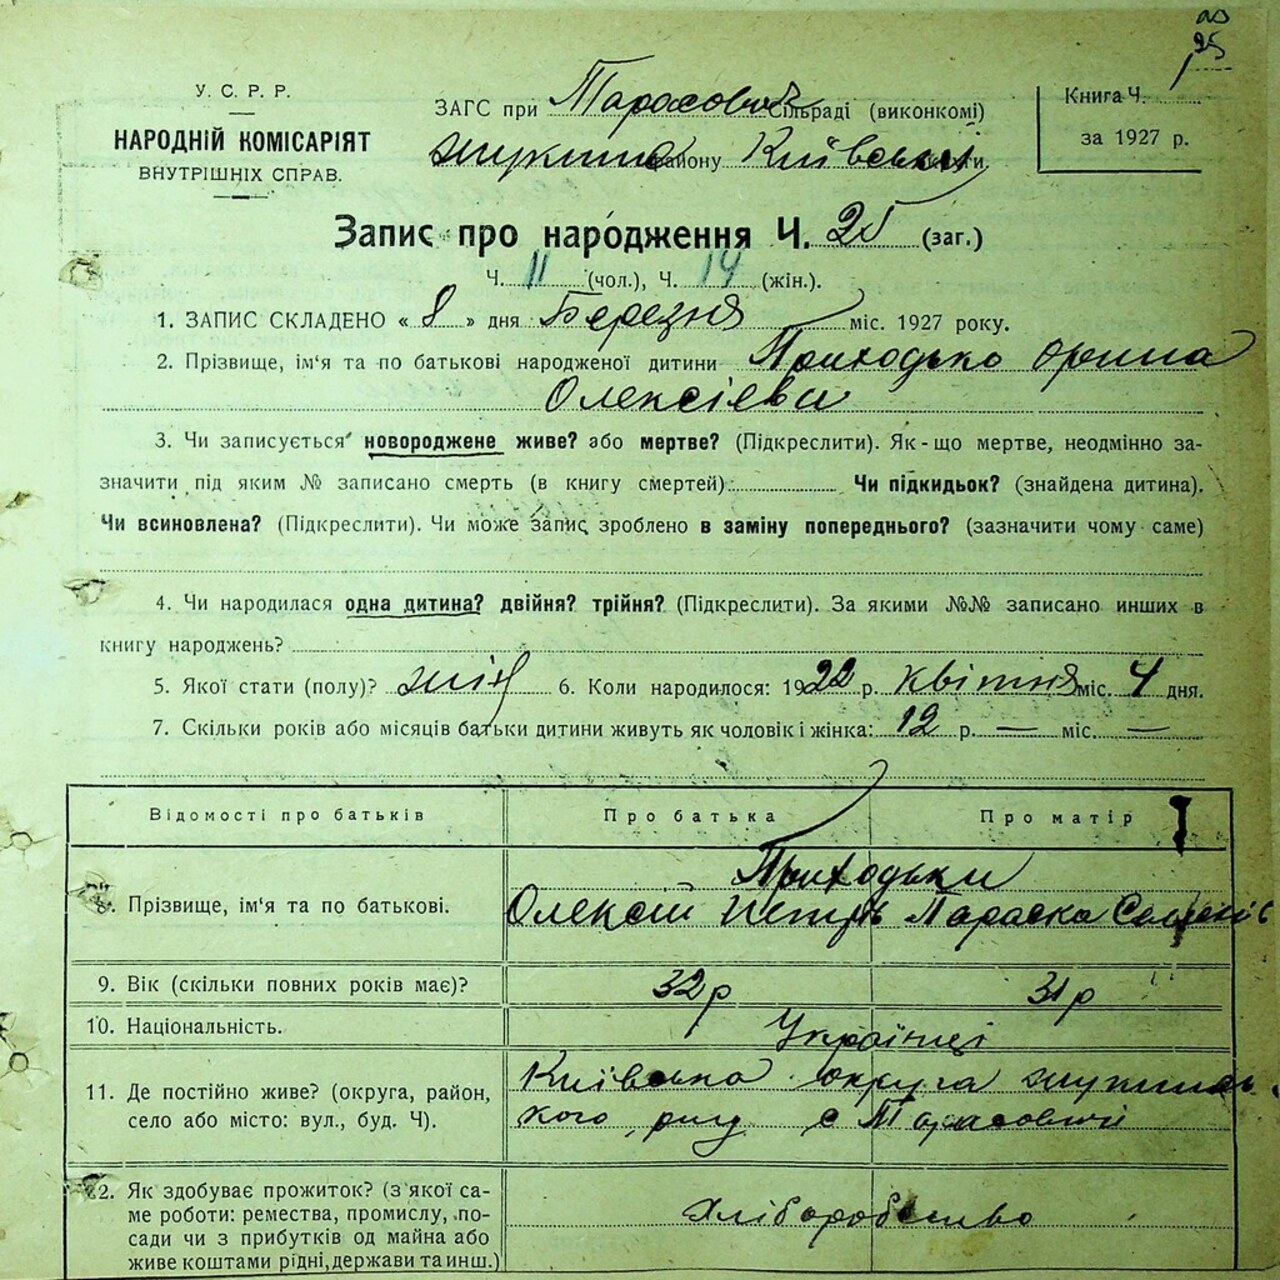 25
У. С. Р. Р.
НАРОДНІЙ КОМІСАРІЯТ
ВНУТРІШНІХ СПРАВ.
ЗАГС при Тарасович Сільраді (виконкомі)
жукинс району Київської округи.
Книга Ч. 1
за 1927 р.
Запис про народження Ч. 25 (заг.)
Ч. 11 (чол.), Ч. 14 (жін.).
1. ЗАПИС СКЛАДЕНО « 8 » дня Березня міс. 1927 року.
2. Прізвище, ім'я та по батькові народженої дитини Приходько Орина
Олексієва
3. Чи записується новороджене живе? або мертве? (Підкреслити). Як-що мертве, неодмінно за-
значити під яким № записано смерть (в книгу смертей) Чи підкидьок? (знайдена дитина).
Чи всиновлена? (Підкреслити). Чи може запис зроблено в заміну попереднього? (зазначити чому саме)
4. Чи народилася одна дитина? двійня? трійня? (Підкреслити). За якими №№ записано инших в
книгу народжень?
5. Якої стати (полу)? жін 6. Коли народилося: 1922 р. квітня міс. 4 дня.
7. Скільки років або місяців батьки дитини живуть як чоловік і жінка: 12 р. — міс. —
Відомості про батьків Про батька Про матір
Приходьки
8. Прізвище, ім'я та по батькові. Олексій Петрів Параска Семенів
9. Вік (скільки повних років має)? 32 р 31 р
10. Національність. Українці
11. Де постійно живе? (округа, район, Київська округа жукинсь
село або місто: вул., буд. Ч). кого р-ну с Тарасовичі
12. Як здобуває прожиток? (з якої са-
ме роботи: ремества, промислу, по- хліборобство
сади чи з прибутків од майна або
живе коштами рідні, держави та инш.)